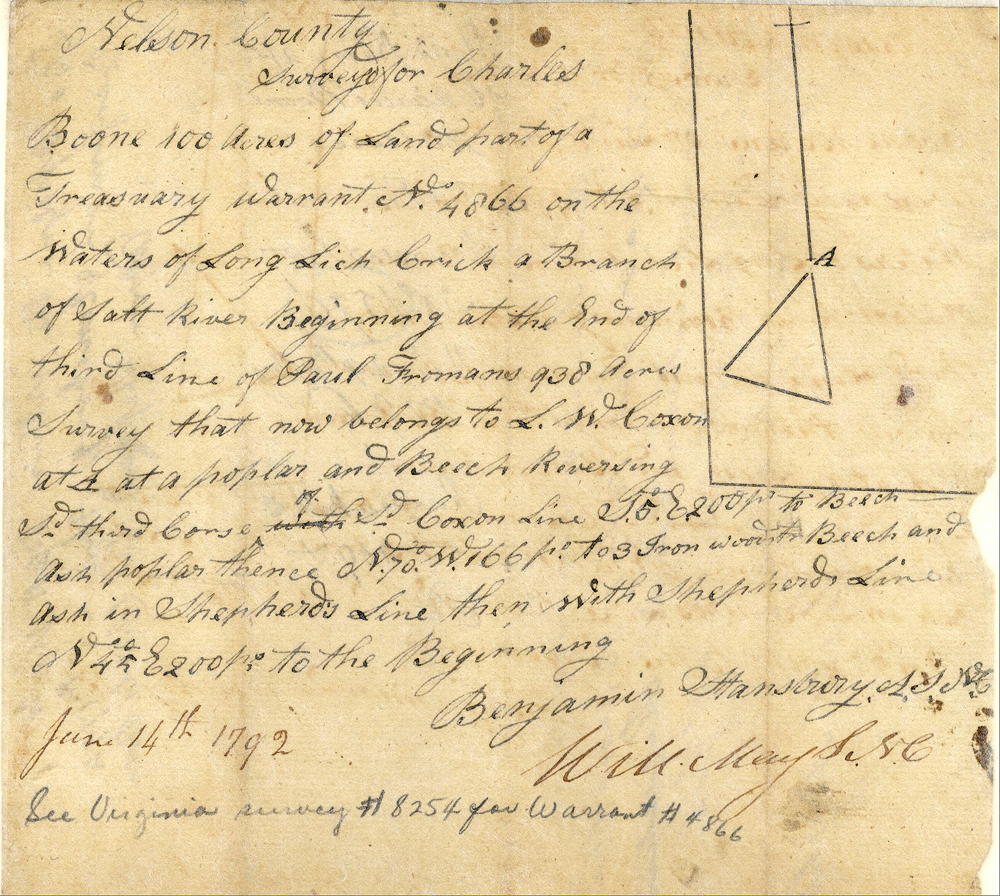 Nelson County
Surveyd for Charles
Boone 100 Acres of Land part of a
Treasuary Warrant No. 4866 on the
Waters of Long Lick Crick a Branch
of Salt River Beginning at the End of
third Line of Paul Fromans 938 Acres
Survey that now belongs to L. W. Coxon
at A at a poplar and Beech Reversing
Sd. third Corse with of Sd Coxon Line S.5.E 200 po to Beech
Ash poplar thence N.70.W. 166 po to 3 Iron woods Beech and
ash in Shepherds Line then With Shepherds Line
N 45 E 200 po to the Beginning
Benjamin Stansbury A. S N C
Will. May S. N C
June 14th 1792
See Virginia survey #8254 for Warrant #4866
A